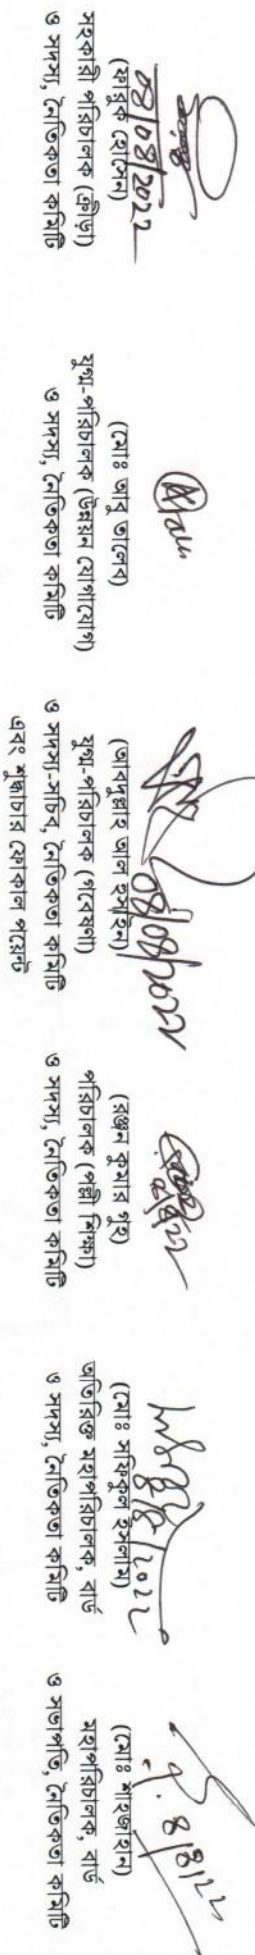 08/08/2022
(ফারুক হোসেন)
সহকারী পরিচালক (ক্রীড়া)
ও সদস্য, নৈতিকতা কমিটি
(মোঃ আবু তালেব)
যুগ্ম-পরিচালক (উন্নয়ন যোগাযোগ)
ও সদস্য, নৈতিকতা কমিটি
08/08/2022
(আবদুল্লাহ আল হুসাইন)
যুগ্ম-পরিচালক (গবেষণা)
ও সদস্য-সচিব, নৈতিকতা কমিটি
এবং শুদ্ধাচার ফোকাল পয়েন্ট
(রঞ্জন কুমার গুহ)
পরিচালক (পল্লী শিক্ষা)
ও সদস্য, নৈতিকতা কমিটি
8/8/2022
(মোঃ সফিকুল ইসলাম)
অতিরিক্ত মহাপরিচালক, বার্ড
ও সদস্য, নৈতিকতা কমিটি
8/8/22
(মোঃ শাহজাহান)
মহাপরিচালক, বার্ড
ও সভাপতি, নৈতিকতা কমিটি